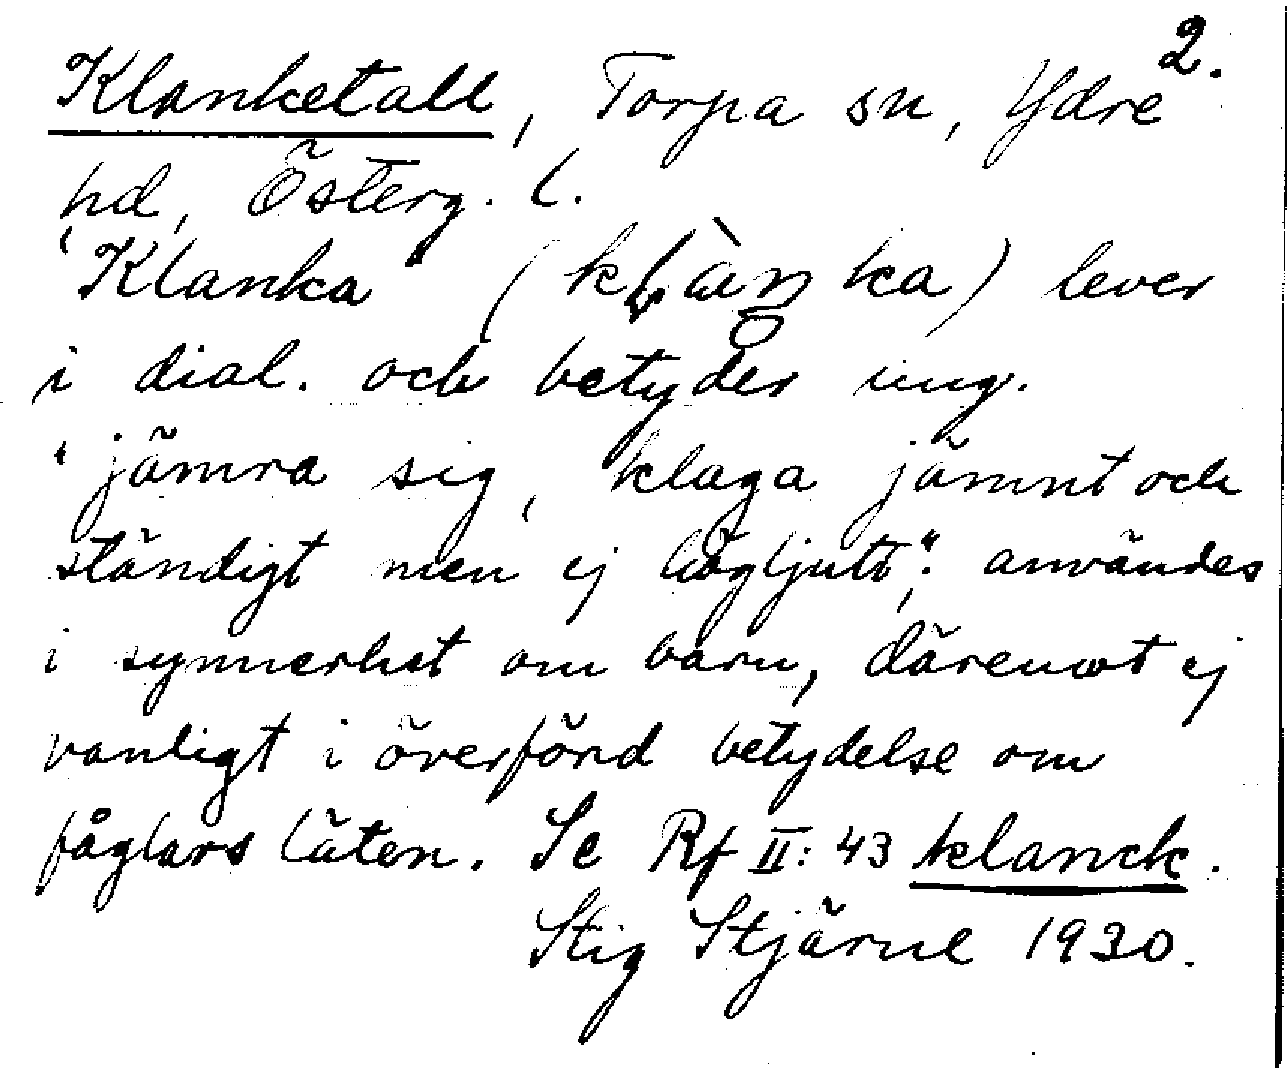 2.
Klanketall, Torpa sn, Ydre
hd, Österg. l.
"Klanka" (klànka) lever
i dial. och betyder ung.
"jämra sig, klaga jämnt och
ständigt men ej högljutt", användes
i synnerhet om barn, däremot ej
vanligt i överförd betydelse om
fåglars läten. Se Rf II: 43 klanck.
Stig Stjärne 1930.